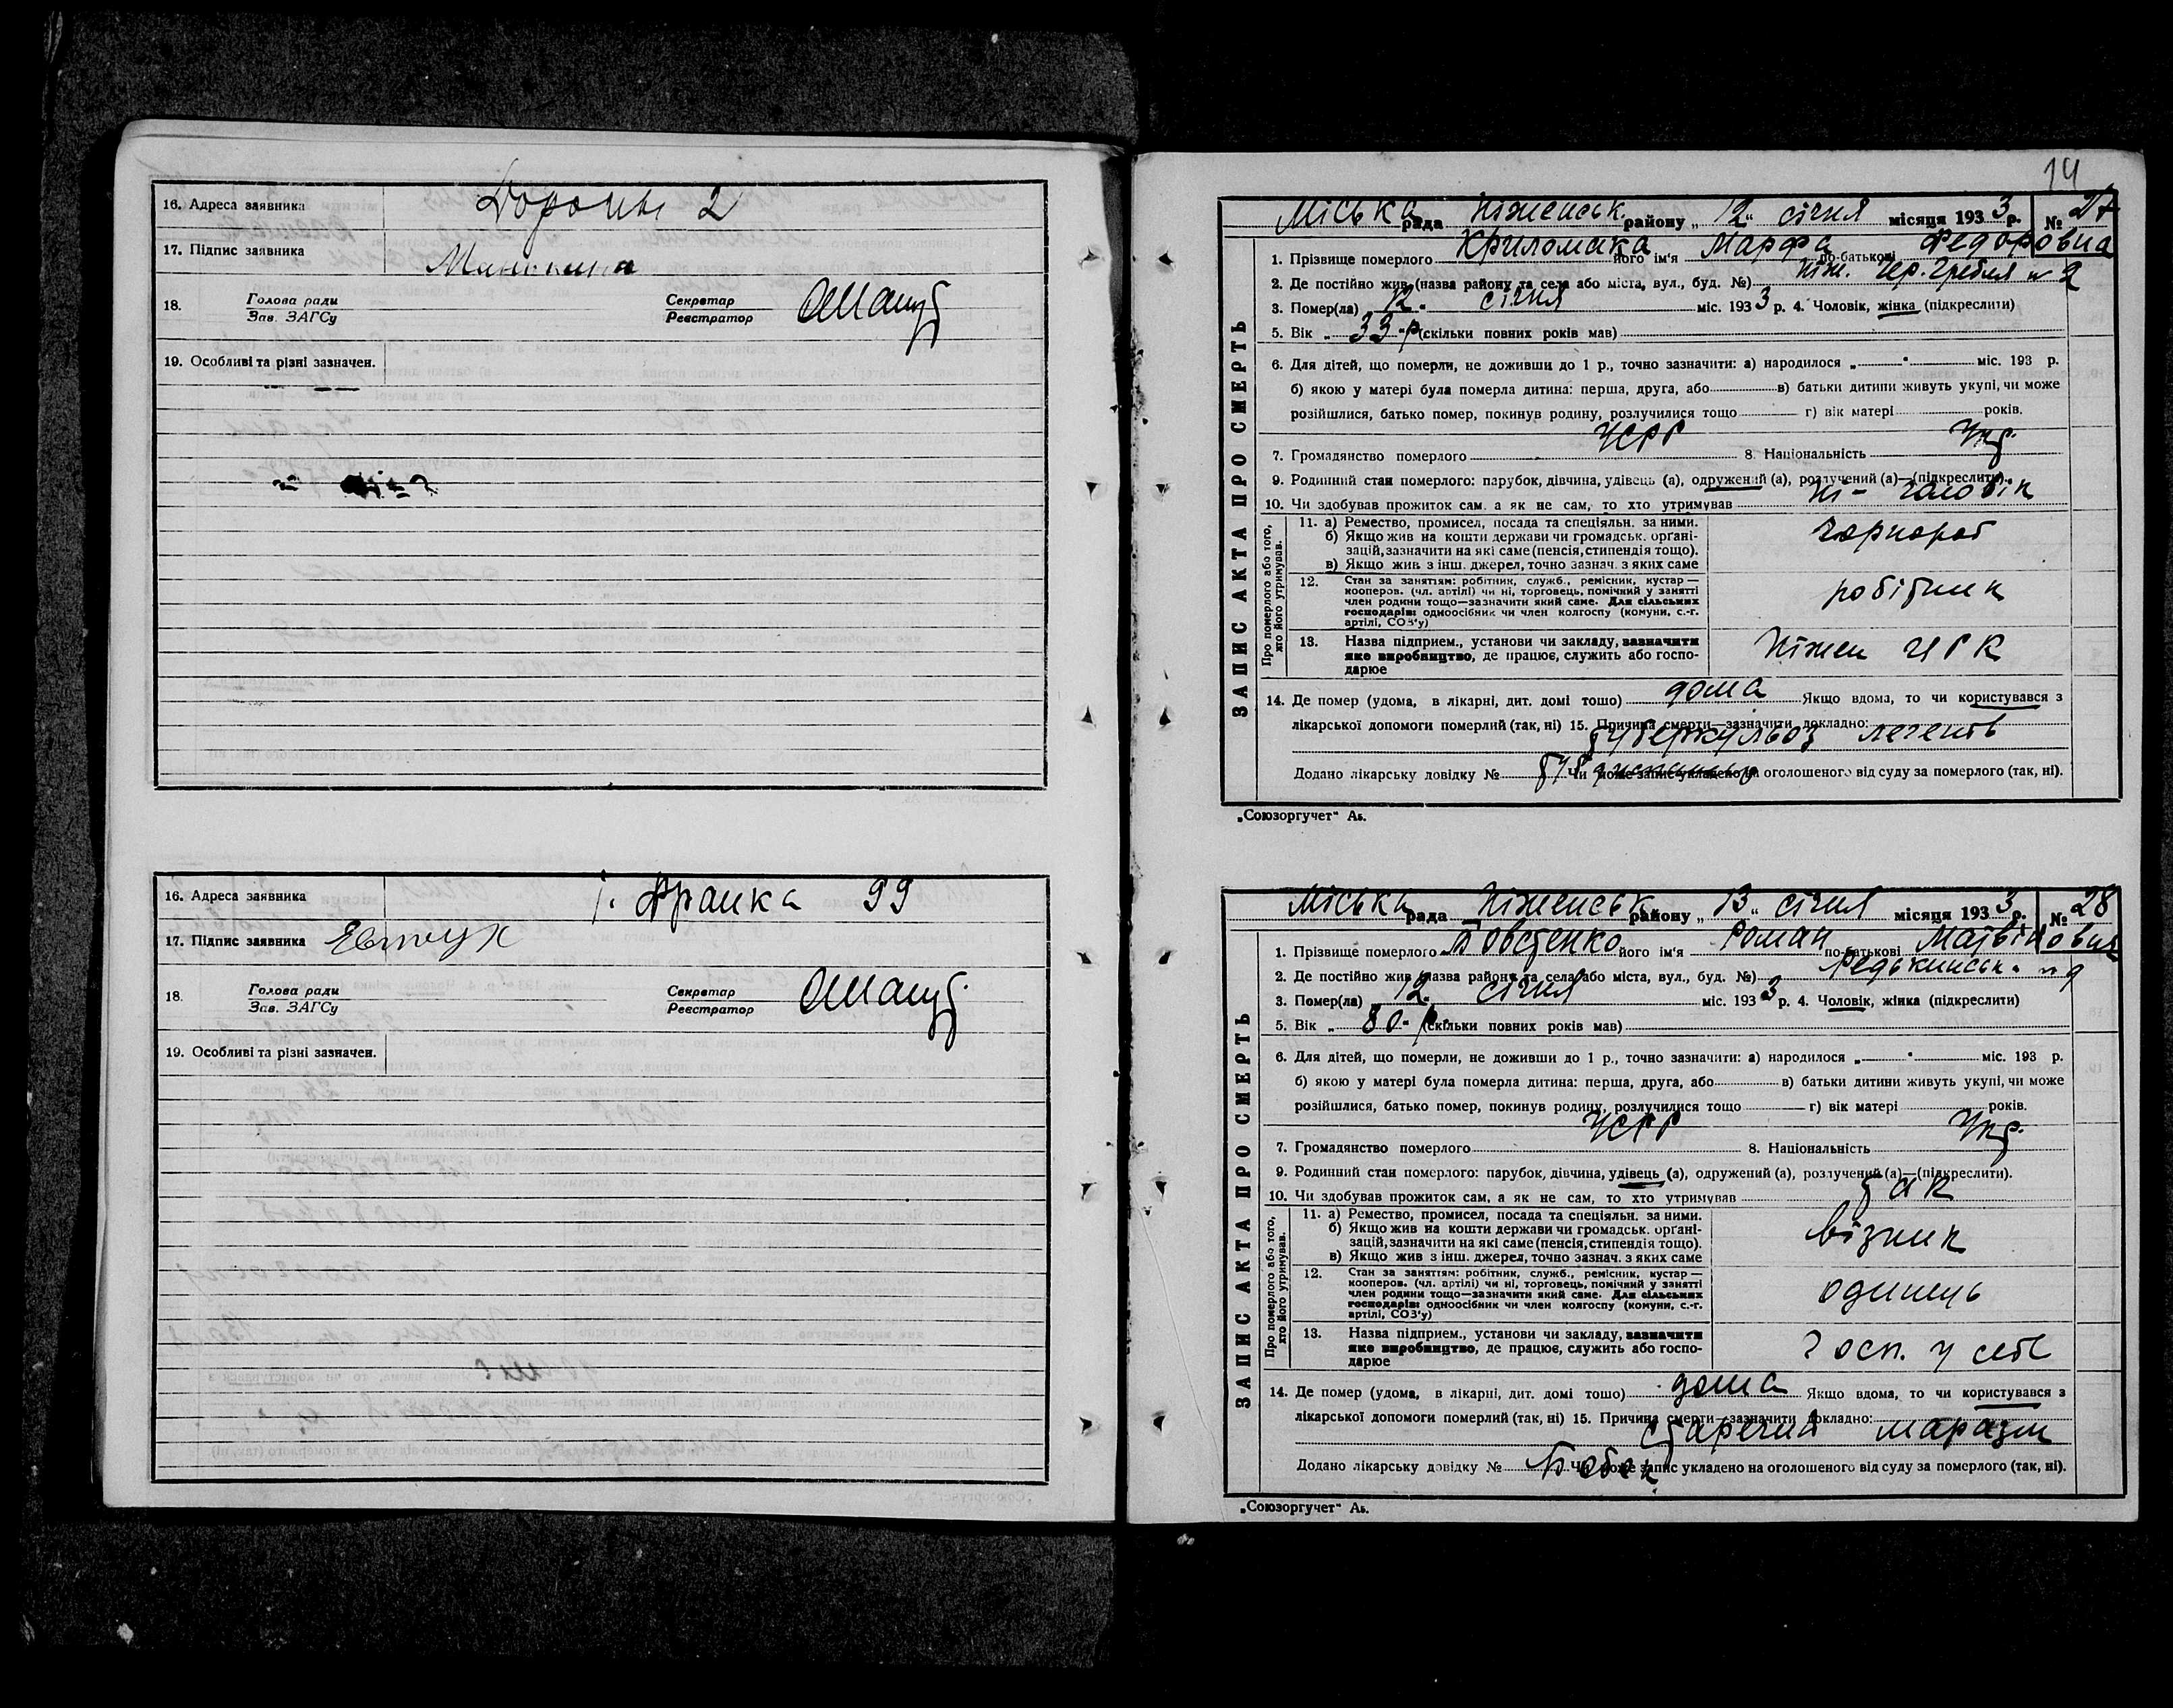 16. Адреса заявника 2
17. Підпис заявника
18. Голова ради
Зав. ЗАГСу
Секретар
Реєстратор
19. Особливі та різні зазначен.
16. Адреса заявника І. Франка 99
17. Підпис заявника
18. Голова ради
Зав. ЗАГСу
Секретар
Реєстратор
19. Особливі та різні зазначен.
14
ЗАПИС АКТА ПРО СМЕРТЬ
Міська рада Ніженськ району „ 12 " січня місяця 1933 р. № 27
1. Прізвище померлого його ім'я Марфа по-батькові Федоровна
2. Де постійно жив (назва району та села або міста, вул., буд. №) Ніж. Чер. Гребля н 2
3. Помер(ла) 12 " січня міс. 1933 р. 4. Чоловік, жінка (підкреслити)
5. Вік „ 33 р (скільки повних років мав)
6. Для дітей, що померли, не доживши до 1 р., точно зазначити: а) народилося „ " міс. 193 р.
б) якою у матері була померла дитина: перша, друга, або в) батьки дитини живуть укупі, чи може
розійшлися, батько помер, покинув родину, розлучилися тощо г) вік матері років.
7. Громадянство померлого УСРР 8. Національність Укр.
9. Родинний стан померлого: парубок, дівчина, удівець (а), одружений (а), розлучений (а)—(підкреслити).
10. Чи здобував прожиток сам, а як не сам, то хто утримував ні - чоловік
Про померлого або того,
хто його утримував.
11. а) Ремество, промисел, посада та спеціяльн. за ними.
б) Якщо жив на кошти держави чи громадськ. органі-
зацій, зазначити на які саме (пенсія, стипендія тощо).
в) Якщо жив з інш. джерел, точно зазнач. з яких саме
чорнороб
12. Стан за заняттям: робітник, служб., ремісник, кустар —
кооперов. (чл. артілі) чи ні, торговець, помічний у занятті
член родини тощо—зазначити який саме. Для сільських
господарів: одноосібник чи член колгоспу (комуни, с.-г.
артілі, СОЗ'у)
робітник
13. Назва підприєм., установи чи закладу, зазначити
яке виробництво, де працює, служить або госпо-
дарює
Ніжен ЦРК
14. Де помер (удома, в лікарні, дит. домі тощо) дома Якщо вдома, то чи користувався з
лікарської допомоги померлий (так, ні) 15. Причина смерти—зазначити докладно:
туберкульоз легенів
Додано лікарську довідку № Чи може запис укладено на оголошеного від суду за померлого (так, ні).
„Союзоргучет" Аь.
ЗАПИС АКТА ПРО СМЕРТЬ
Міська рада Ніженськ району „ 13 " січня місяця 1933 р. № 28
1. Прізвище померлого Товстенко його ім'я Роман по-батькові
2. Де постійно жив (назва району та села або міста, вул., буд. №) Редькинськ. н 9
3. Помер(ла) 12 " січня міс. 1933 р. 4. Чоловік, жінка (підкреслити)
5. Вік „ 80 - р. (скільки повних років мав)
6. Для дітей, що померли, не доживши до 1 р., точно зазначити: а) народилося „ " міс. 193 р.
б) якою у матері була померла дитина: перша, друга, або в) батьки дитини живуть укупі, чи може
розійшлися, батько помер, покинув родину, розлучилися тощо г) вік матері років.
7. Громадянство померлого УСРР 8. Національність Укр.
9. Родинний стан померлого: парубок, дівчина, удівець (а), одружений (а), розлучений (а)—(підкреслити).
10. Чи здобував прожиток сам, а як не сам, то хто утримував так
Про померлого або того,
хто його утримував.
11. а) Ремество, промисел, посада та спеціяльн. за ними.
б) Якщо жив на кошти держави чи громадськ. органі-
зацій, зазначити на які саме (пенсія, стипендія тощо).
в) Якщо жив з інш. джерел, точно зазнач. з яких саме
візник
12. Стан за заняттям: робітник, служб., ремісник, кустар —
кооперов. (чл. артілі) чи ні, торговець, помічний у занятті
член родини тощо—зазначити який саме. Для сільських
господарів: одноосібник чи член колгоспу (комуни, с.-г.
артілі, СОЗ'у)
одинець
13. Назва підприєм., установи чи закладу, зазначити
яке виробництво, де працює, служить або госпо-
дарює
госп. у себе
14. Де помер (удома, в лікарні, дит. домі тощо) дома Якщо вдома, то чи користувався з
лікарської допомоги померлий (так, ні) 15. Причина смерти—зазначити докладно:
старечий маразм
Додано лікарську довідку № Чи може запис укладено на оголошеного від суду за померлого (так, ні).
„Союзоргучет" Аь.